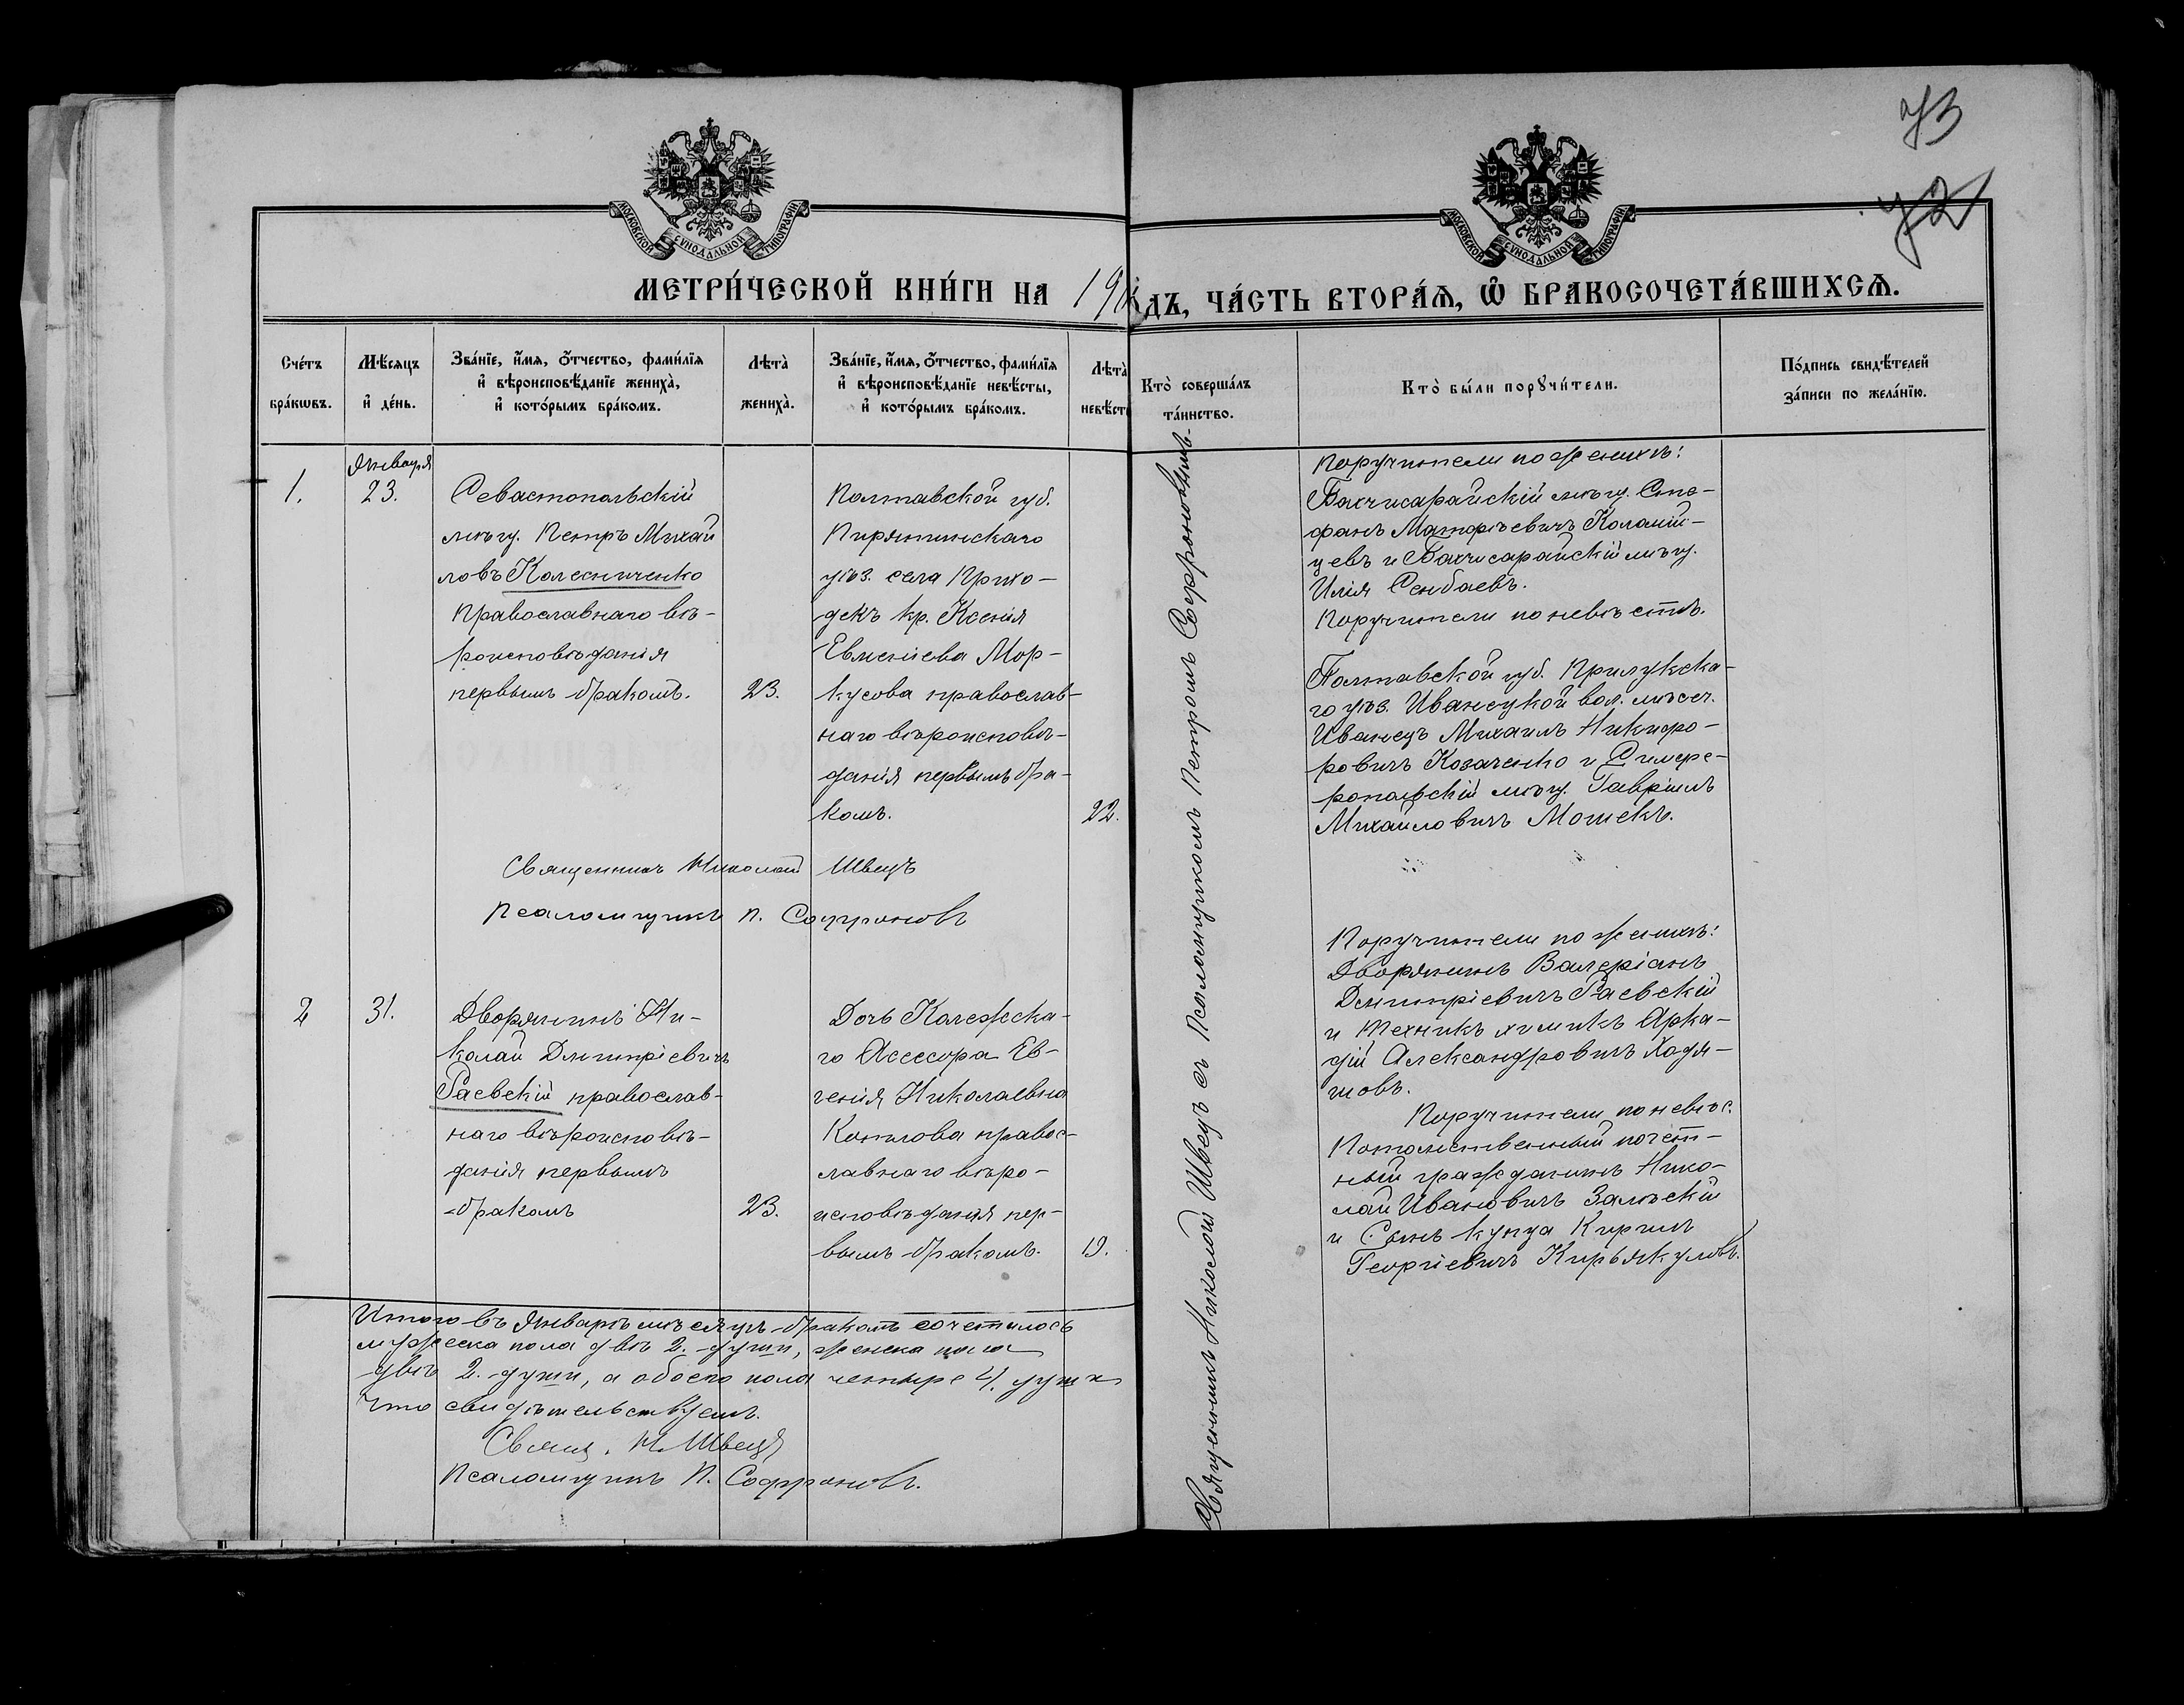 73
72
МОСКОВСКОЙ СУНОДАЛЬНОЙ ТИПОГРАФІИ
МОСКОВСКОЙ СУНОДАЛЬНОЙ ТИПОГРАФІИ
МЕТРИ́ЧЕСКОЙ КНИ́ГИ НА 190
дъ, ЧА́СТЬ ВТОРА́Ѧ, Ѽ БРАКОСОЧЕТА́ВШИХСѦ.
Сче́тъ
бра́кѡвъ.
Мѣ́сѧцъ
и҆ де́нь.
Зва́нїе, и҆́мѧ, ѻ҆́тчество, фами́лїѧ
и҆ вѣроисповѣ́данїе жениха̀,
и҆ кото́рымъ бра́комъ.
Лѣта̀
жениха̀.
Зва́нїе, и҆́мѧ, ѻ҆́тчество, фами́лїѧ
и҆ вѣроисповѣ́данїе невѣ́сты,
и҆ кото́рымъ бра́комъ.
Лѣта̀
невѣ́ст
Кто̀ соверша́лъ
та́инство.
Кто̀ бы́ли порꙋчи́тели.
По́дпись свидѣ́телей
за́писи по жела́нїю.
1.
Января
23.
Севастопольскій
мѣщ. Петръ Михай
ловъ Колесниченко
Православнаго вѣ-
роисповѣданія
первымъ бракомъ.
23.
Полтавской губ.
Пирятинскаго
уѣз. села Прихо-
декъ кр. Ксенія
Евменіева Мор-
кусова православ-
наго вѣроисповѣ-
данія первымъ бра-
комъ.
22.
Священникъ Николай Швецъ
Псаломщикъ П. Софроновъ
Поручители по женихѣ:
Бахчисарайскій мѣщ. Сте-
фанъ Коломій-
цевъ и Бахчисарайскій мѣщ.
Илія Сенбаевъ.
Поручители по невѣстѣ.
Полтавской губ. Прилукска-
го уѣз. Иванецкой вол. мѣсеч.
Иванецъ Михаилъ Никифо-
ровичъ Козаченко и Симфе-
ропольскій мѣщ. Гавріилъ
Михайловичъ Мошекъ.
2
31.
Дворянинъ Ни-
колай Дмитріевичъ
Раевскій православ-
наго вѣроисповѣ-
данія первымъ
бракомъ
23.
Дочь Коллежска-
го Асессора Ев-
генія Николаевна
Котлова правос-
лавнаго вѣро-
исповѣданія пер-
вымъ бракомъ.
19.
Священникъ Николай Швецъ съ Псаломщикомъ Петромъ Софроновымъ
Поручители по женихѣ:
Дворянинъ Валеріанъ
Дмитріевичъ Раевскій
и Техникъ химикъ Арка-
дій Александровичъ Ходя-
шовъ.
Поручители по невѣс.
Потомственный почет-
ный гражданинъ Нико-
лай Ивановичъ Залѣскій
и Сынъ купца Кирилъ
Георгіевичъ Кирьякуловъ.
Итого въ Январѣ мѣсяцѣ бракомъ сочеталось
мужеска пола двѣ 2. души, женска пола
двѣ 2. души, а обоего пола четыре 4. души
Что свидѣтельствуемъ.
Свящ. Н. Швецъ
Псаломщикъ П. Софроновъ.